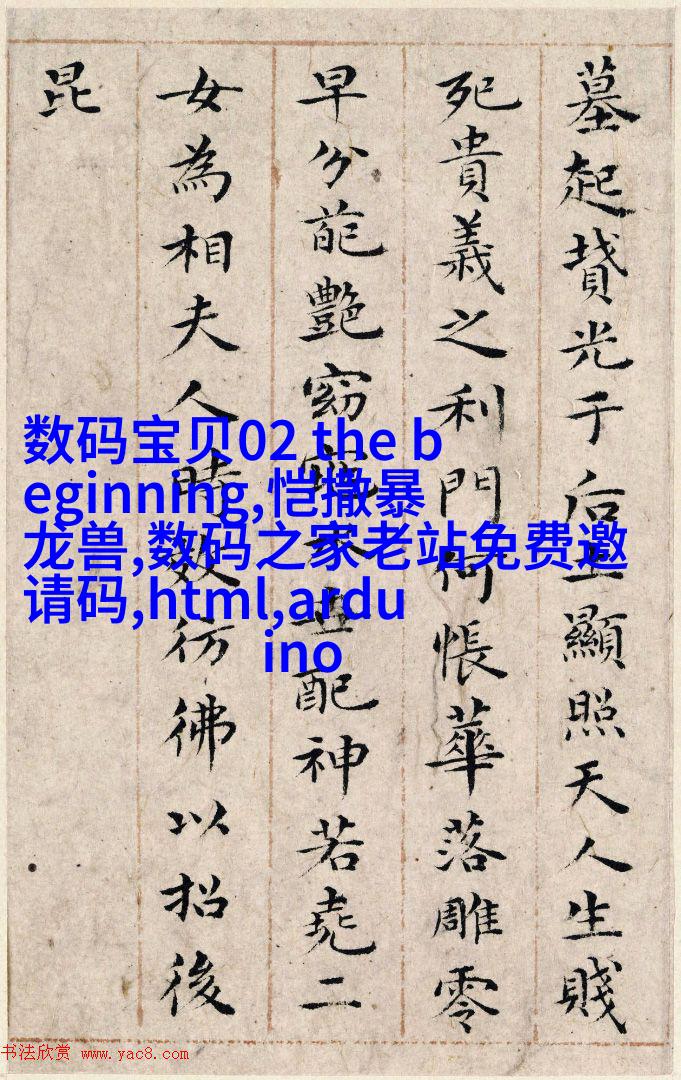 墓起墳光于后土顯照天人生賤
死貴義之利門何悵華落雕零
早分葩艶窈窕永世配神若堯二
女為相夫人時效彷彿以招後
昆
数码宝贝02 the b
eginning,恺撒暴
龙兽,数码之家老站免费邀
请码,html,ardu
ino
书法欣赏 www.yac8.com